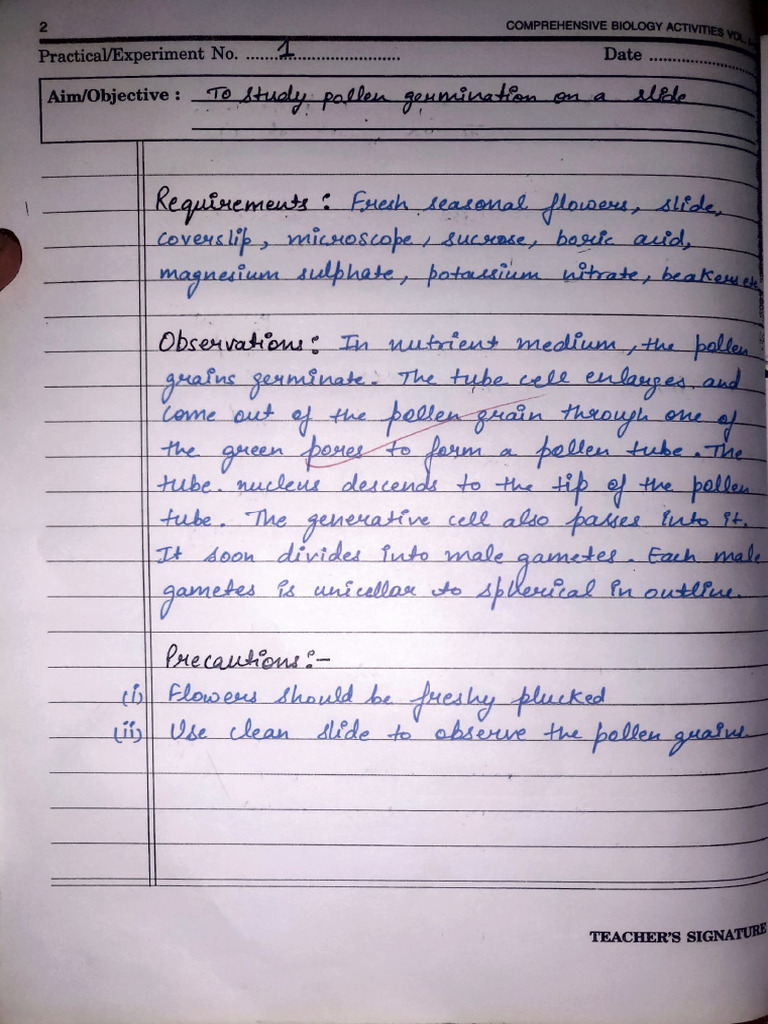 2
COMPREHENSIVE BIOLOGY ACTIVITIES VOL.
Practical/Experiment No. ........1........................... Date ........................
Aim/Objective : To study pollen germination on a slide
Requirements : Fresh seasonal flowers, slide,
coverslip, microscope, sucrose, boric acid,
magnesium sulphate, potassium nitrate, beakers etc
Observations : In nutrient medium, the pollen
grains germinate. The tube cell enlarges and
come out of the pollen grain through one of
the green pores to form a pollen tube. The
tube nucleus descends to the tip of the pollen
tube. The generative cell also passes into it.
It soon divides into male gametes. Each male
gametes is unicellar to spherical in outline.
Precautions :-
(i) Flowers should be freshy plucked
(ii) Use clean slide to observe the pollen grains.
TEACHER'S SIGNATURE